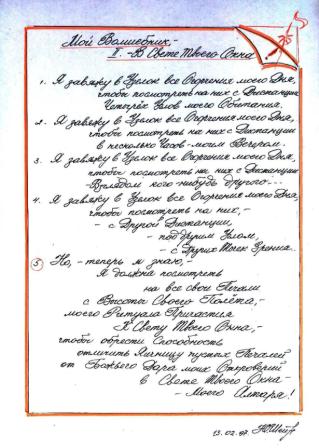 Мой Волшебник,-
II. - В Свете Твоего Окна
1. Я завяжу в Узелок все Огорчения моего Дня,
чтобы посмотреть на них с Дистанции
Четырёх Углов моего Обитания.
2. Я завяжу в Узелок все Огорчения моего Дня,
чтобы посмотреть на них с Дистанции
в несколько Часов - моим Вечером.
3. Я завяжу в Узелок все Огорчения моего Дня,
чтобы посмотреть на них с Дистанции
- Взглядом кого-нибудь другого...
4. Я завяжу в Узелок все Огорчения моего Дня,
чтобы посмотреть на них,-
- с Другой Дистанции,
- под другим Углом,
- с Других Точек Зрения...
5 Но, - теперь я знаю,-
Я должна посмотреть
на все свои Печали
с Высоты Своего Полёта,-
моего Ритуала Причастия
К Свету Твоего Окна,-
чтобы обрести Способность
отличить Яичницу пустых Печалей
от Божьего Дара моих Откровений
в Свете Твоего Окна-
- Моего Алтаря!
13.02.97.